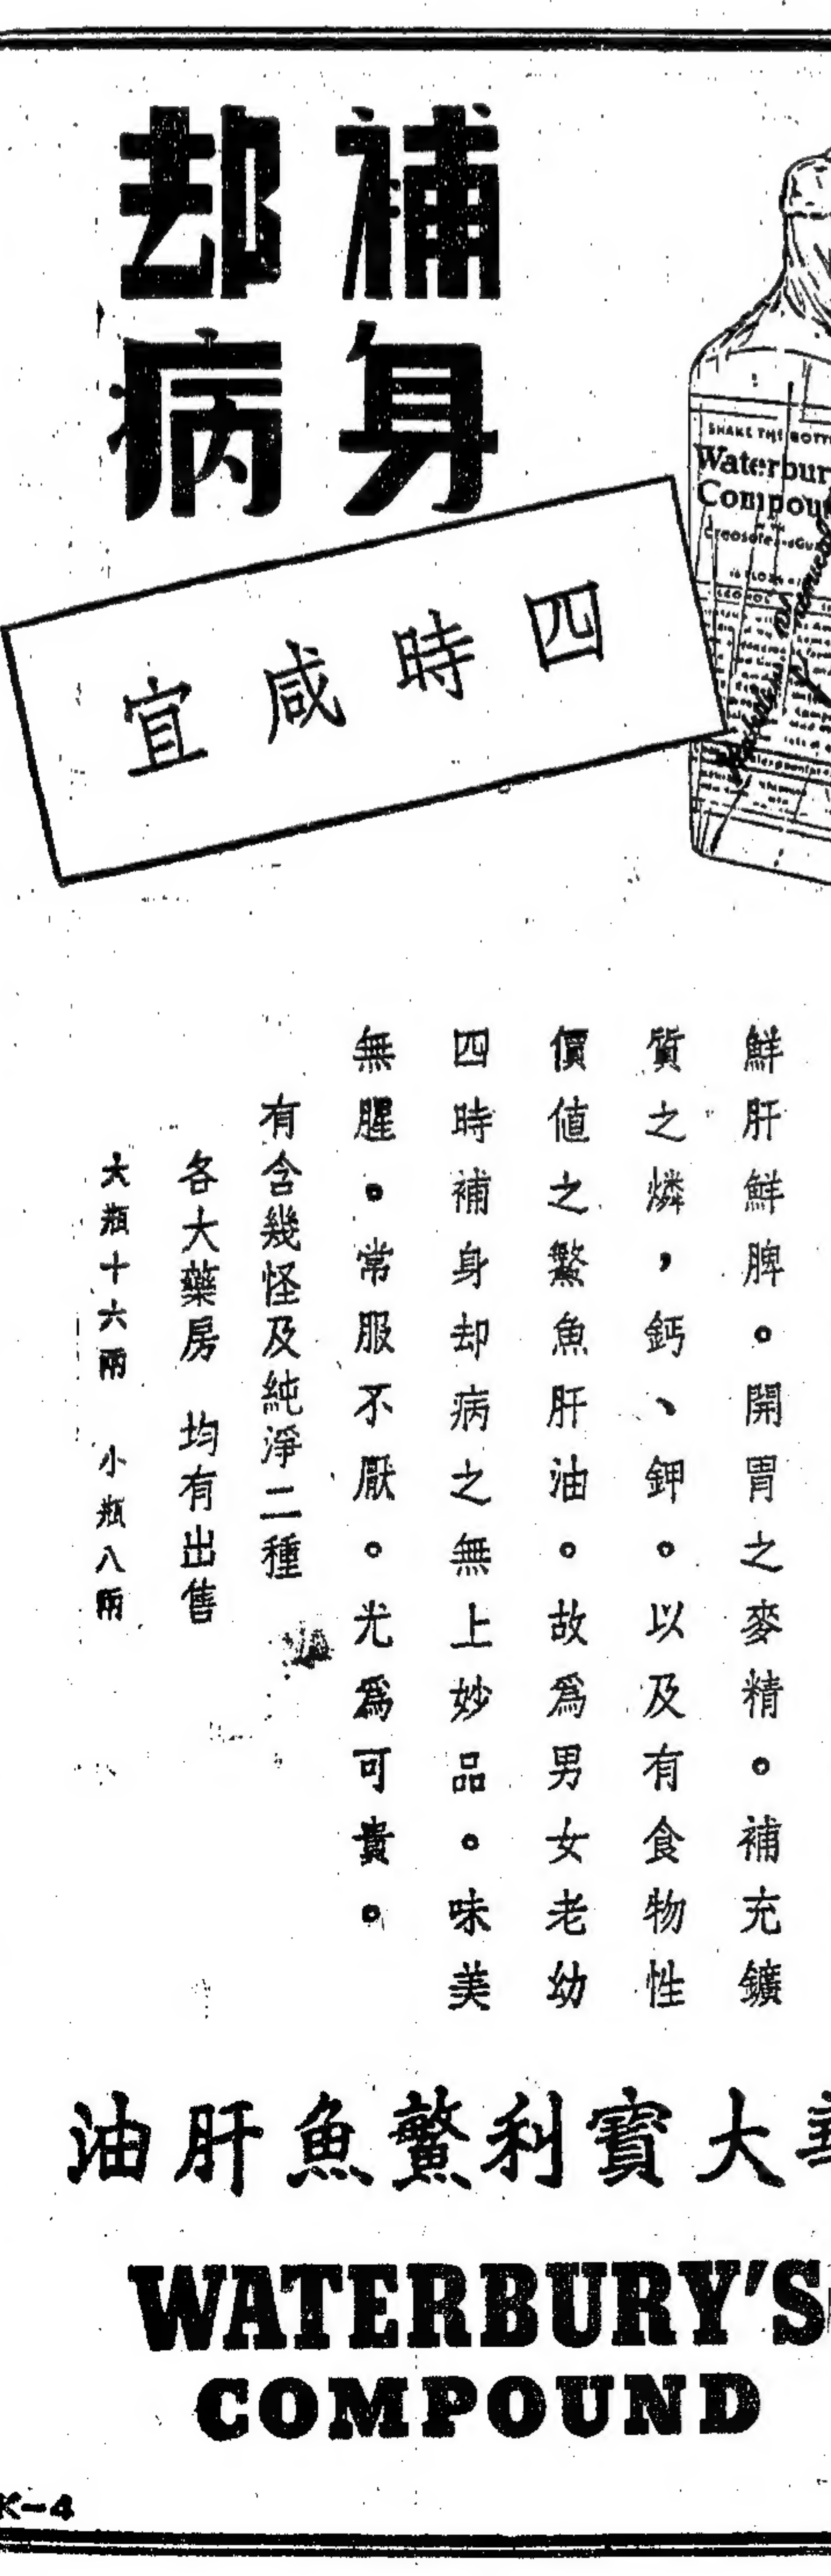 補身
却病
四時咸宜
SHAKE THE
Waterbur
Compou
鮮肝鮮脾。開胃之麥精。補充鑛
質之燐，鈣、鉀。以及有食物性
價值之鰵魚肝油。故爲男女老幼
四時補身却病之無上妙品。味美
無腥。常服不厭。尤爲可貴。
有含幾怪及純淨二種
各大藥房 均有出售
大瓶十六兩 小瓶八兩
大寶利鰵魚肝油
WATERBURY'S
COMPOUND
K-4